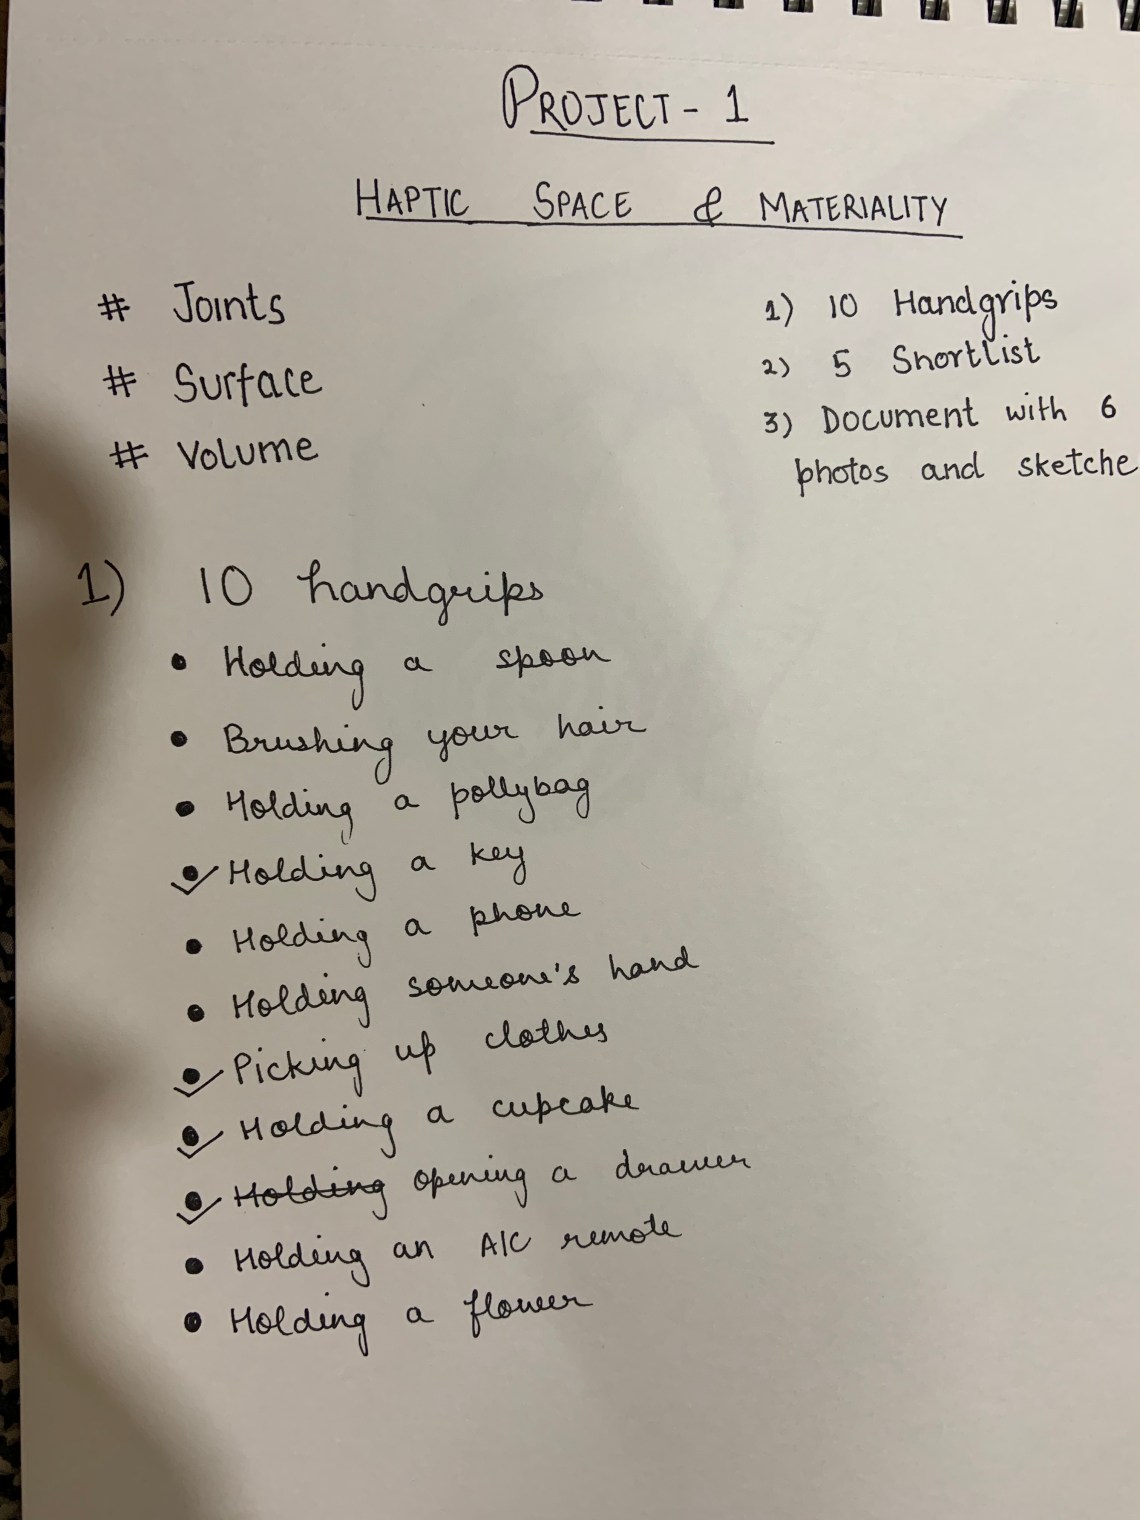 PROJECT - 1
HAPTIC SPACE & MATERIALITY
# Joints
# Surface
# Volume
1) 10 Handgrips
2) 5 Shortlist
3) Document with 6
photos and sketche
1) 10 handgrips
• Holding a spoon
• Brushing your hair
• Holding a pollybag
• Holding a key
• Holding a phone
• Holding someone's hand
• Picking up clothes
• Holding a cupcake
• Holding opening a drawer
• Holding an A/C remote
• Holding a flower